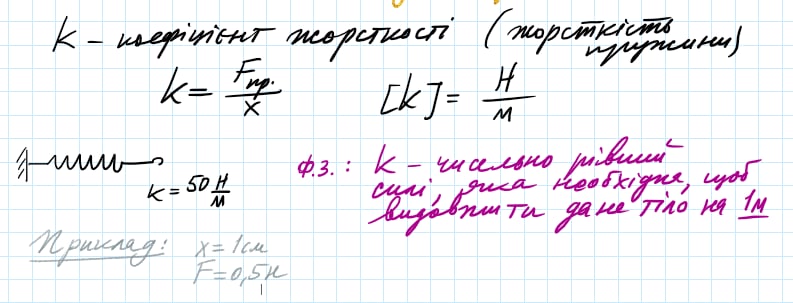 k – коефіцієнт жорсткості (жорсткість пружини)
k = Fпр. / x [k] = Н / м
k = 50 Н/м
Ф.З.: k – чисельно рівний
силі, яка необхідна, щоб
видовжити дане тіло на 1м
Приклад: x = 1см
F = 0,5Н